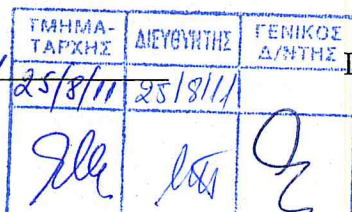 ΤΜΗΜΑ-
ΤΑΡΧΗΣ
ΔΙΕΥΘΥΝΤΗΣ
ΓΕΝΙΚΟΣ
Δ/ΝΤΗΣ
25/8/11
25/8/11